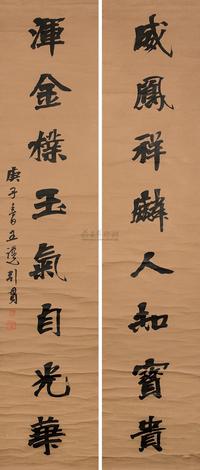 威鳳祥麟人知寶貴
渾金樸玉氣自光華
庚子